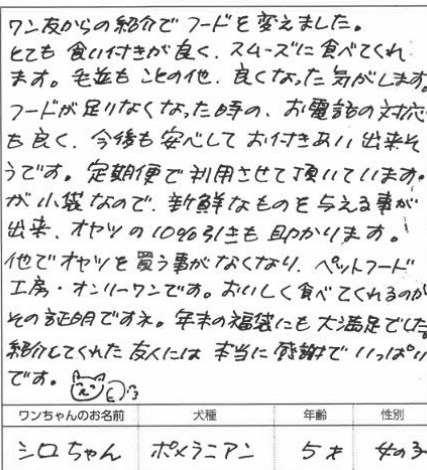 ワン友からの紹介でフードを変えました。
とても食い付きが良く、スムーズに食べてくれ
ます。毛並もことの他、良くなった気がします。
フードが足りなくなった時の、お電話の対応
も良く、今後も安心してお付きあい出来そ
うです。定期便で利用させて頂いています。
が小袋なので、新鮮なものを与える事が
出来、オヤツの10%引きも助かります。
他でオヤツを買う事がなくなり、ペットフード
工房・オンリーワンです。おいしく食べてくれるのが
その証明ですネ。年末の福袋にも大満足でした
紹介してくれた友人には本当に感謝でいっぱい
です。
ワンちゃんのお名前 犬種 年齢 性別
シロちゃん ポメラニアン 5才 女の子